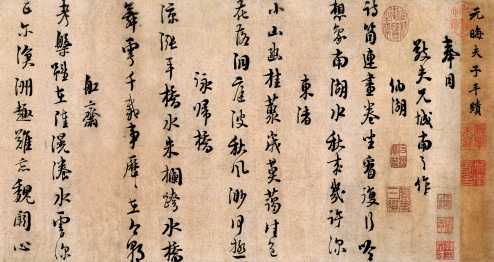 元晦夫子手蹟
奉同
敬夫兄城南之作
納湖
詩筒連畫卷坐看復行吟
想象南湖水秋來幾許深
東渚
小山幽桂叢歲莫藹佳色
花落洞庭波秋風渺何極
詠歸橋
綠漲平橋水朱欄跨水橋
舞雩千載事歷歷在今朝
船齋
考槃雖在陸滉瀁水雲深
正尔滄洲趣難忘魏闕心